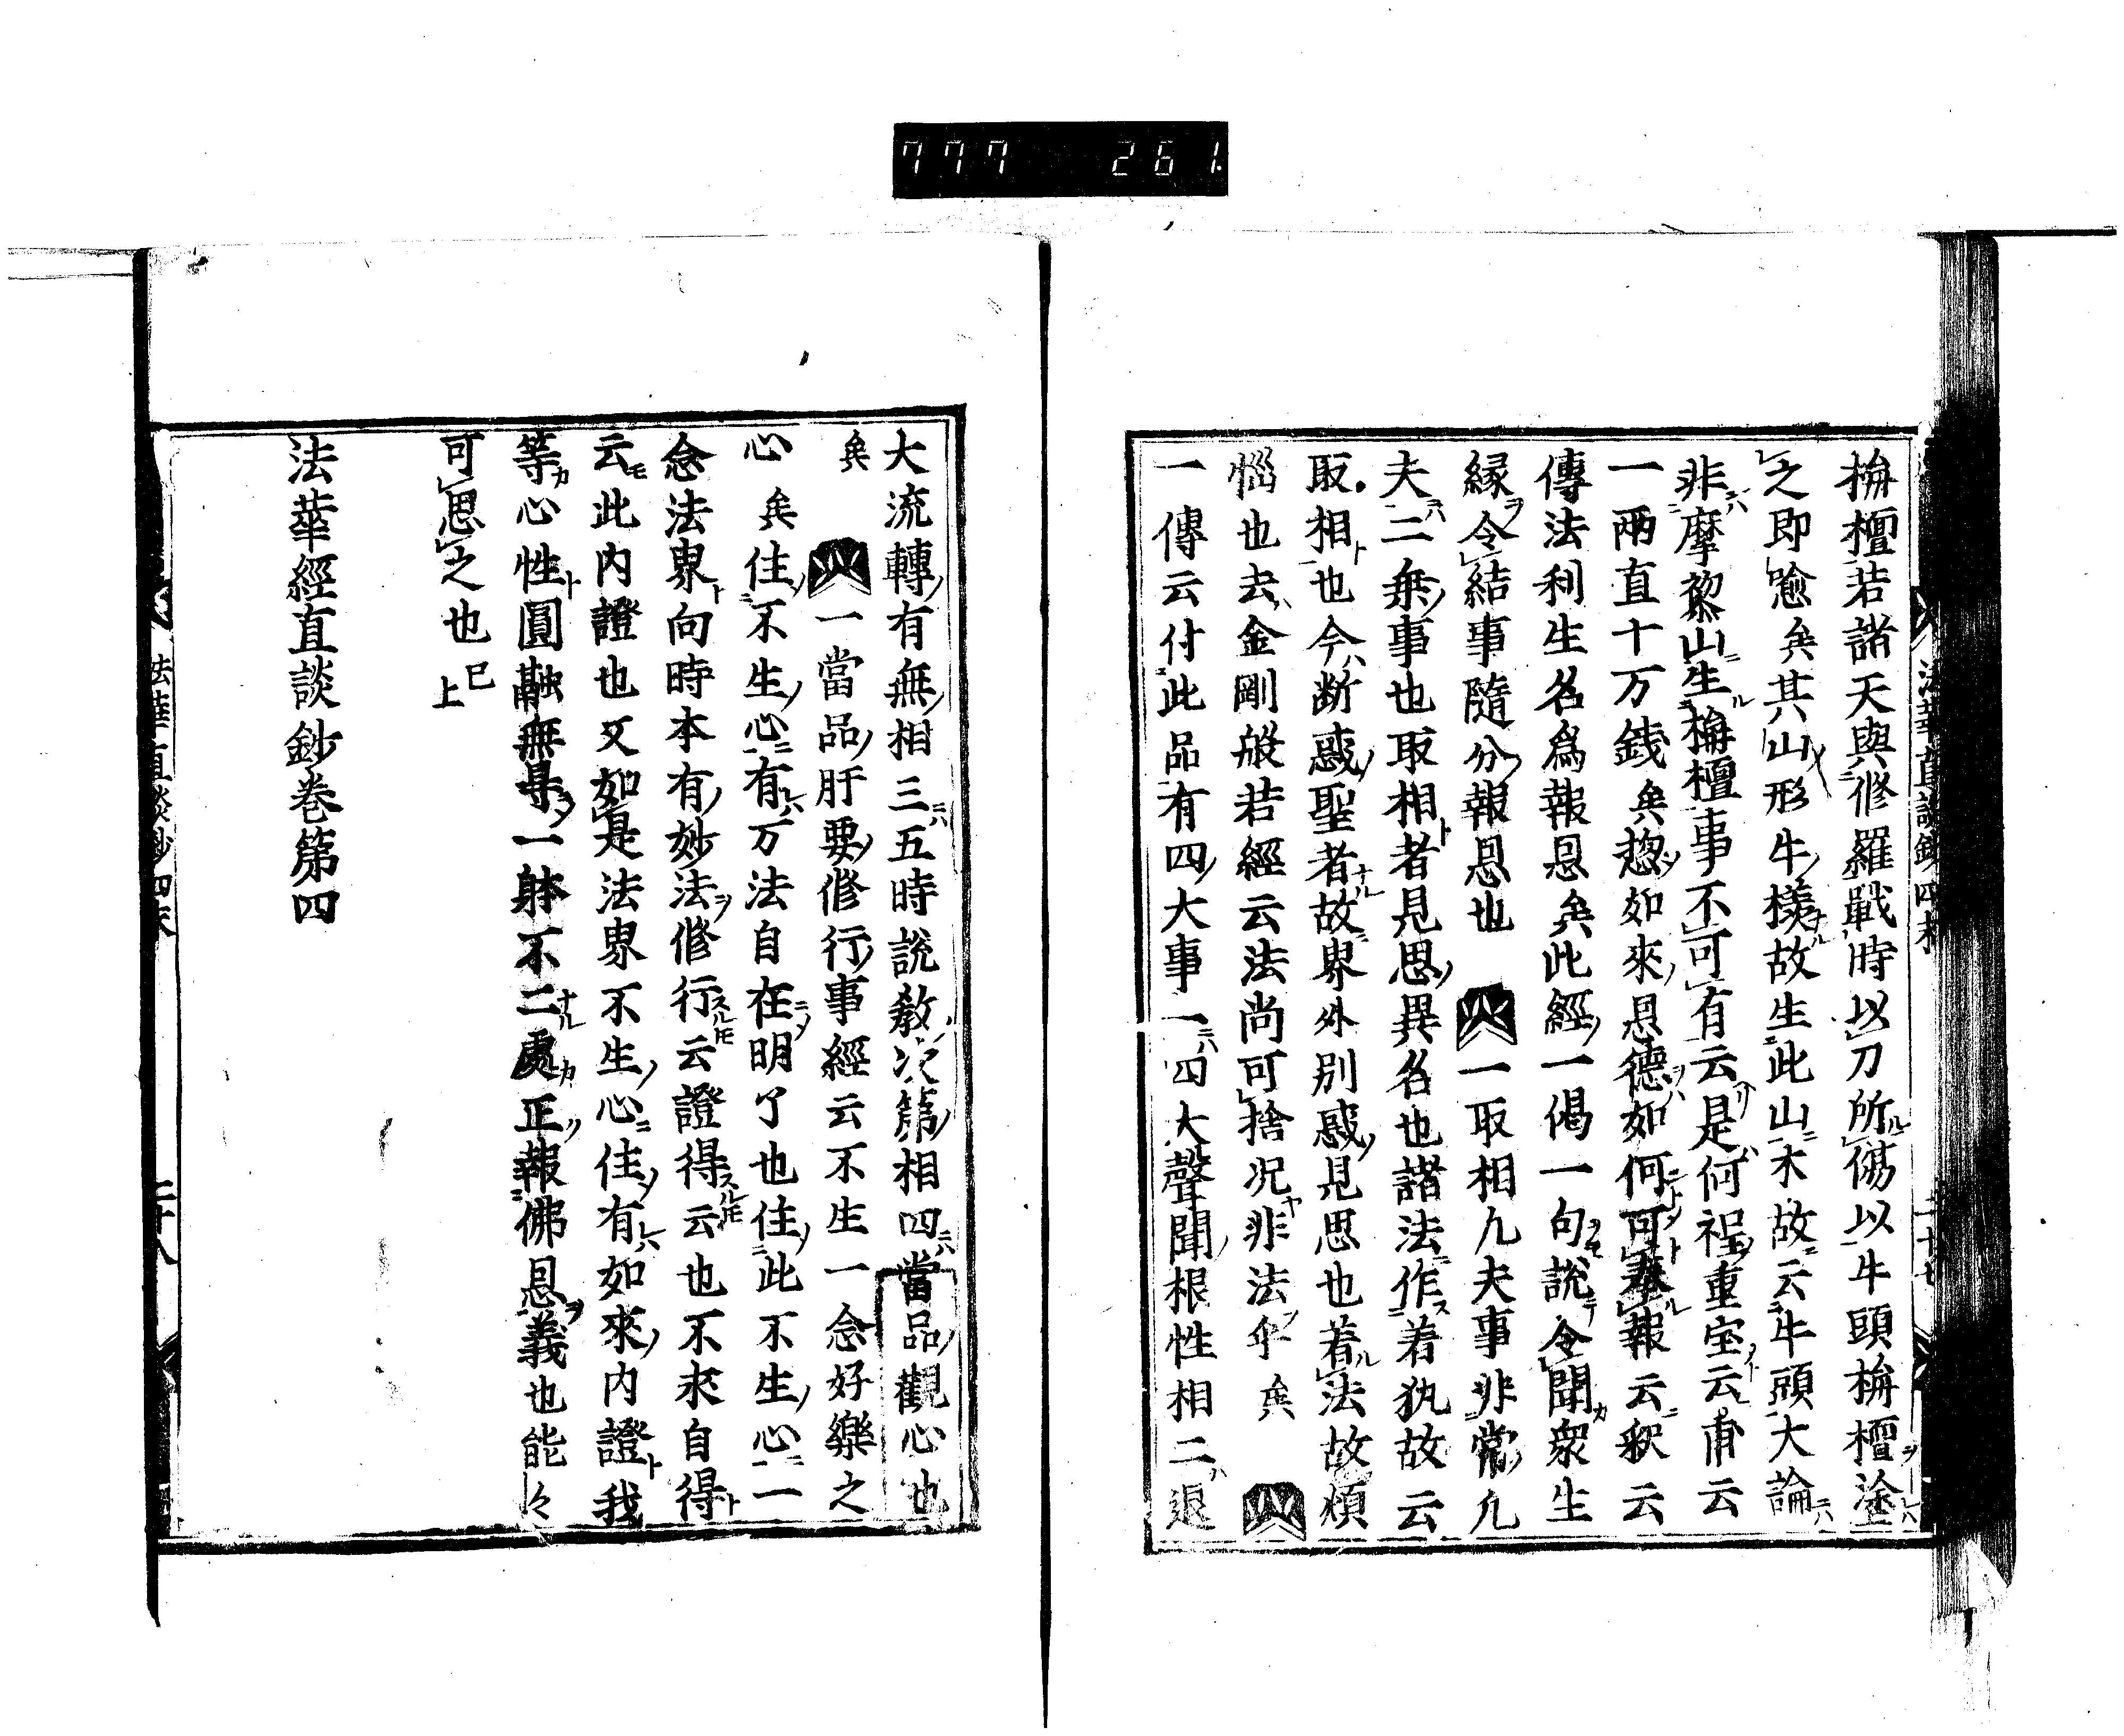 777 261
栴檀若諸天與修羅戰時以刀所傷以牛頭栴檀塗
之即愈矣其山形牛樣故生此山木故云牛頭大論
非摩黎山生栴檀事不可有云是何程重宝云甫云
一兩直十万銭矣惣如來恩德如何可奉報云釈云
傳法利生名爲報恩矣此經一偈一句說令聞衆生
縁令結事隨分報恩也 一取相凡夫事非常凡
夫二乗事也取相者見思異名也諸法作着執故云
取相也今断惑聖者故界外別惑見思也着法故煩
惱也去金剛般若經云法尚可捨况非法乎矣
一傳云付此品有四大事一四大聲聞根性相二退
大流轉有無相三五時說教次第相四當品觀心也
矣 一當品肝要修行事經云不生一念好樂之
心矣住不生心有万法自在明了也住此不生心一
念法界向時本有妙法修行云證得云也不求自得
云此内證也又如是法界不生心住有如來内證我
等心性圓融無㝵一躰不二處正報佛恩義也能々
可思之也 已上
法華經直談鈔巻第四
法華直談鈔四末 二十八